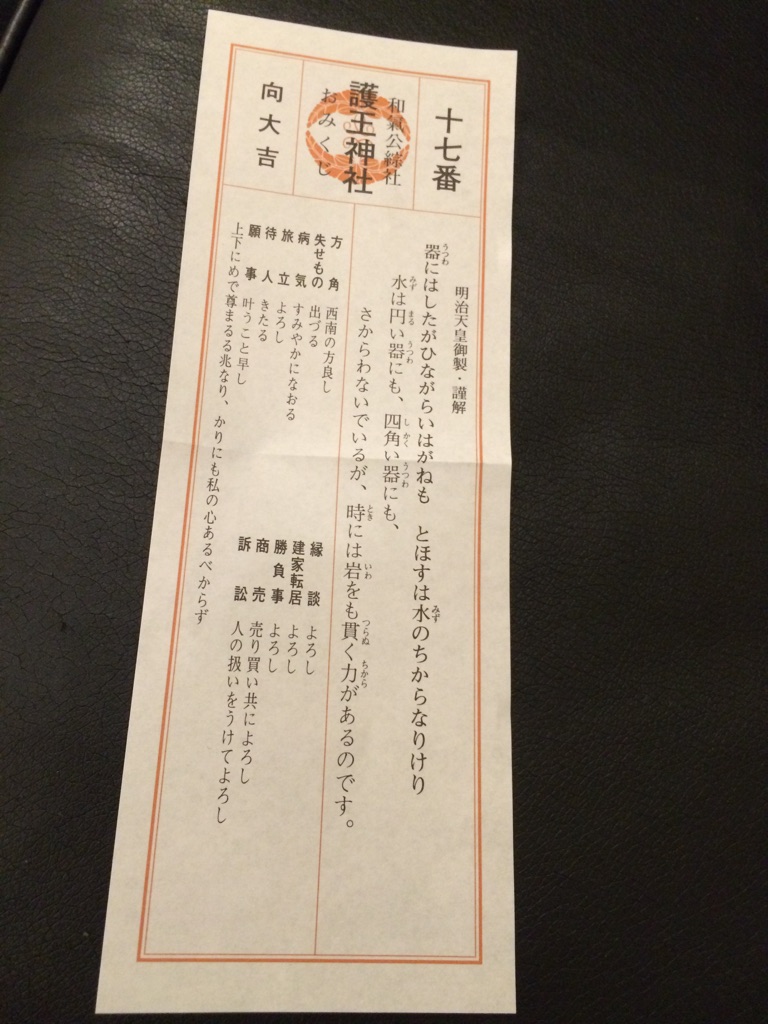 十七番
和氣公綜社
護王神社
おみくじ
向大吉
明治天皇御製・謹解
器にはしたがひながらいはがねも　とほすは水のちからなりけり
水は円い器にも、四角い器にも、
さからわないでいるが、時には岩をも貫く力があるのです。
方角　西南の方良し
失せもの　出づる
病気　すみやかになおる
旅立　よろし
待人　きたる
願事　叶うこと早し
縁談　よろし
建家転居　よろし
勝負事　よろし
商売　売り買い共によろし
訴訟　人の扱いをうけてよろし
上下にめで尊まるる兆なり、かりにも私の心あるべからず